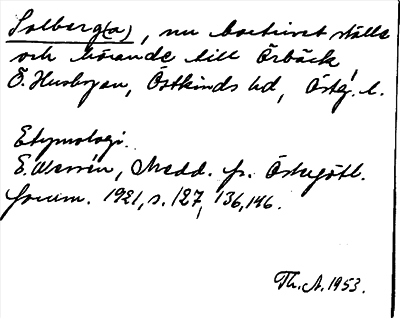 Solberg(a), nu bortrivet ställe
och hörande till Örbäck,
Ö. Husbyn, Östkinds hd, Östg. l.
Etymologi.
E. Wessén, Medd. fr. Östergötl.
fornm. 1921, s. 127, 136, 146.
Th. A. 1953.